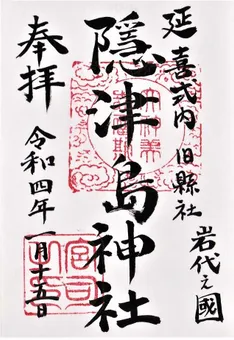 延喜式内 旧縣社
岩代之國
隠津島神社
奉拝
令和四年一月十五日
宮司